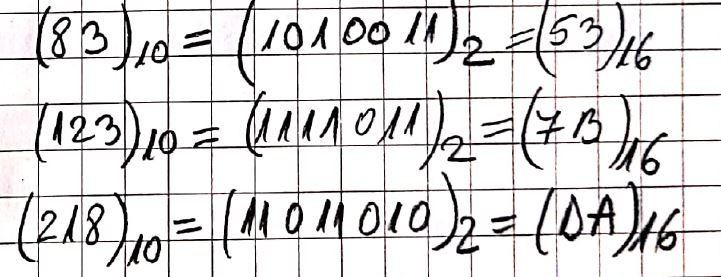 (83)₁₀ = (1010011)₂ = (53)₁₆
(123)₁₀ = (1111011)₂ = (7B)₁₆
(218)₁₀ = (11011010)₂ = (DA)₁₆